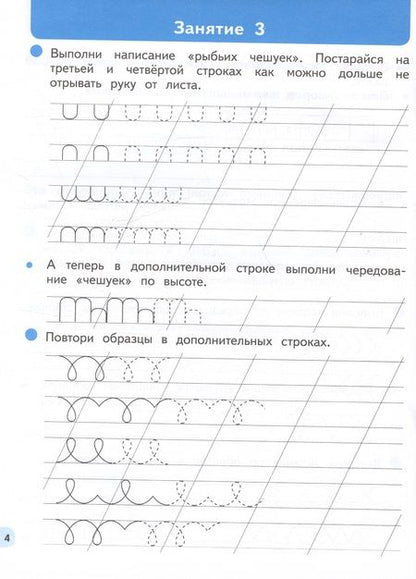 Занятие 3
Выполни написание «рыбьих чешуек». Постарайся на
третьей и четвёртой строках как можно дольше не
отрывать руку от листа.
А теперь в дополнительной строке выполни чередова-
ние «чешуек» по высоте.
Повтори образцы в дополнительных строках.
4